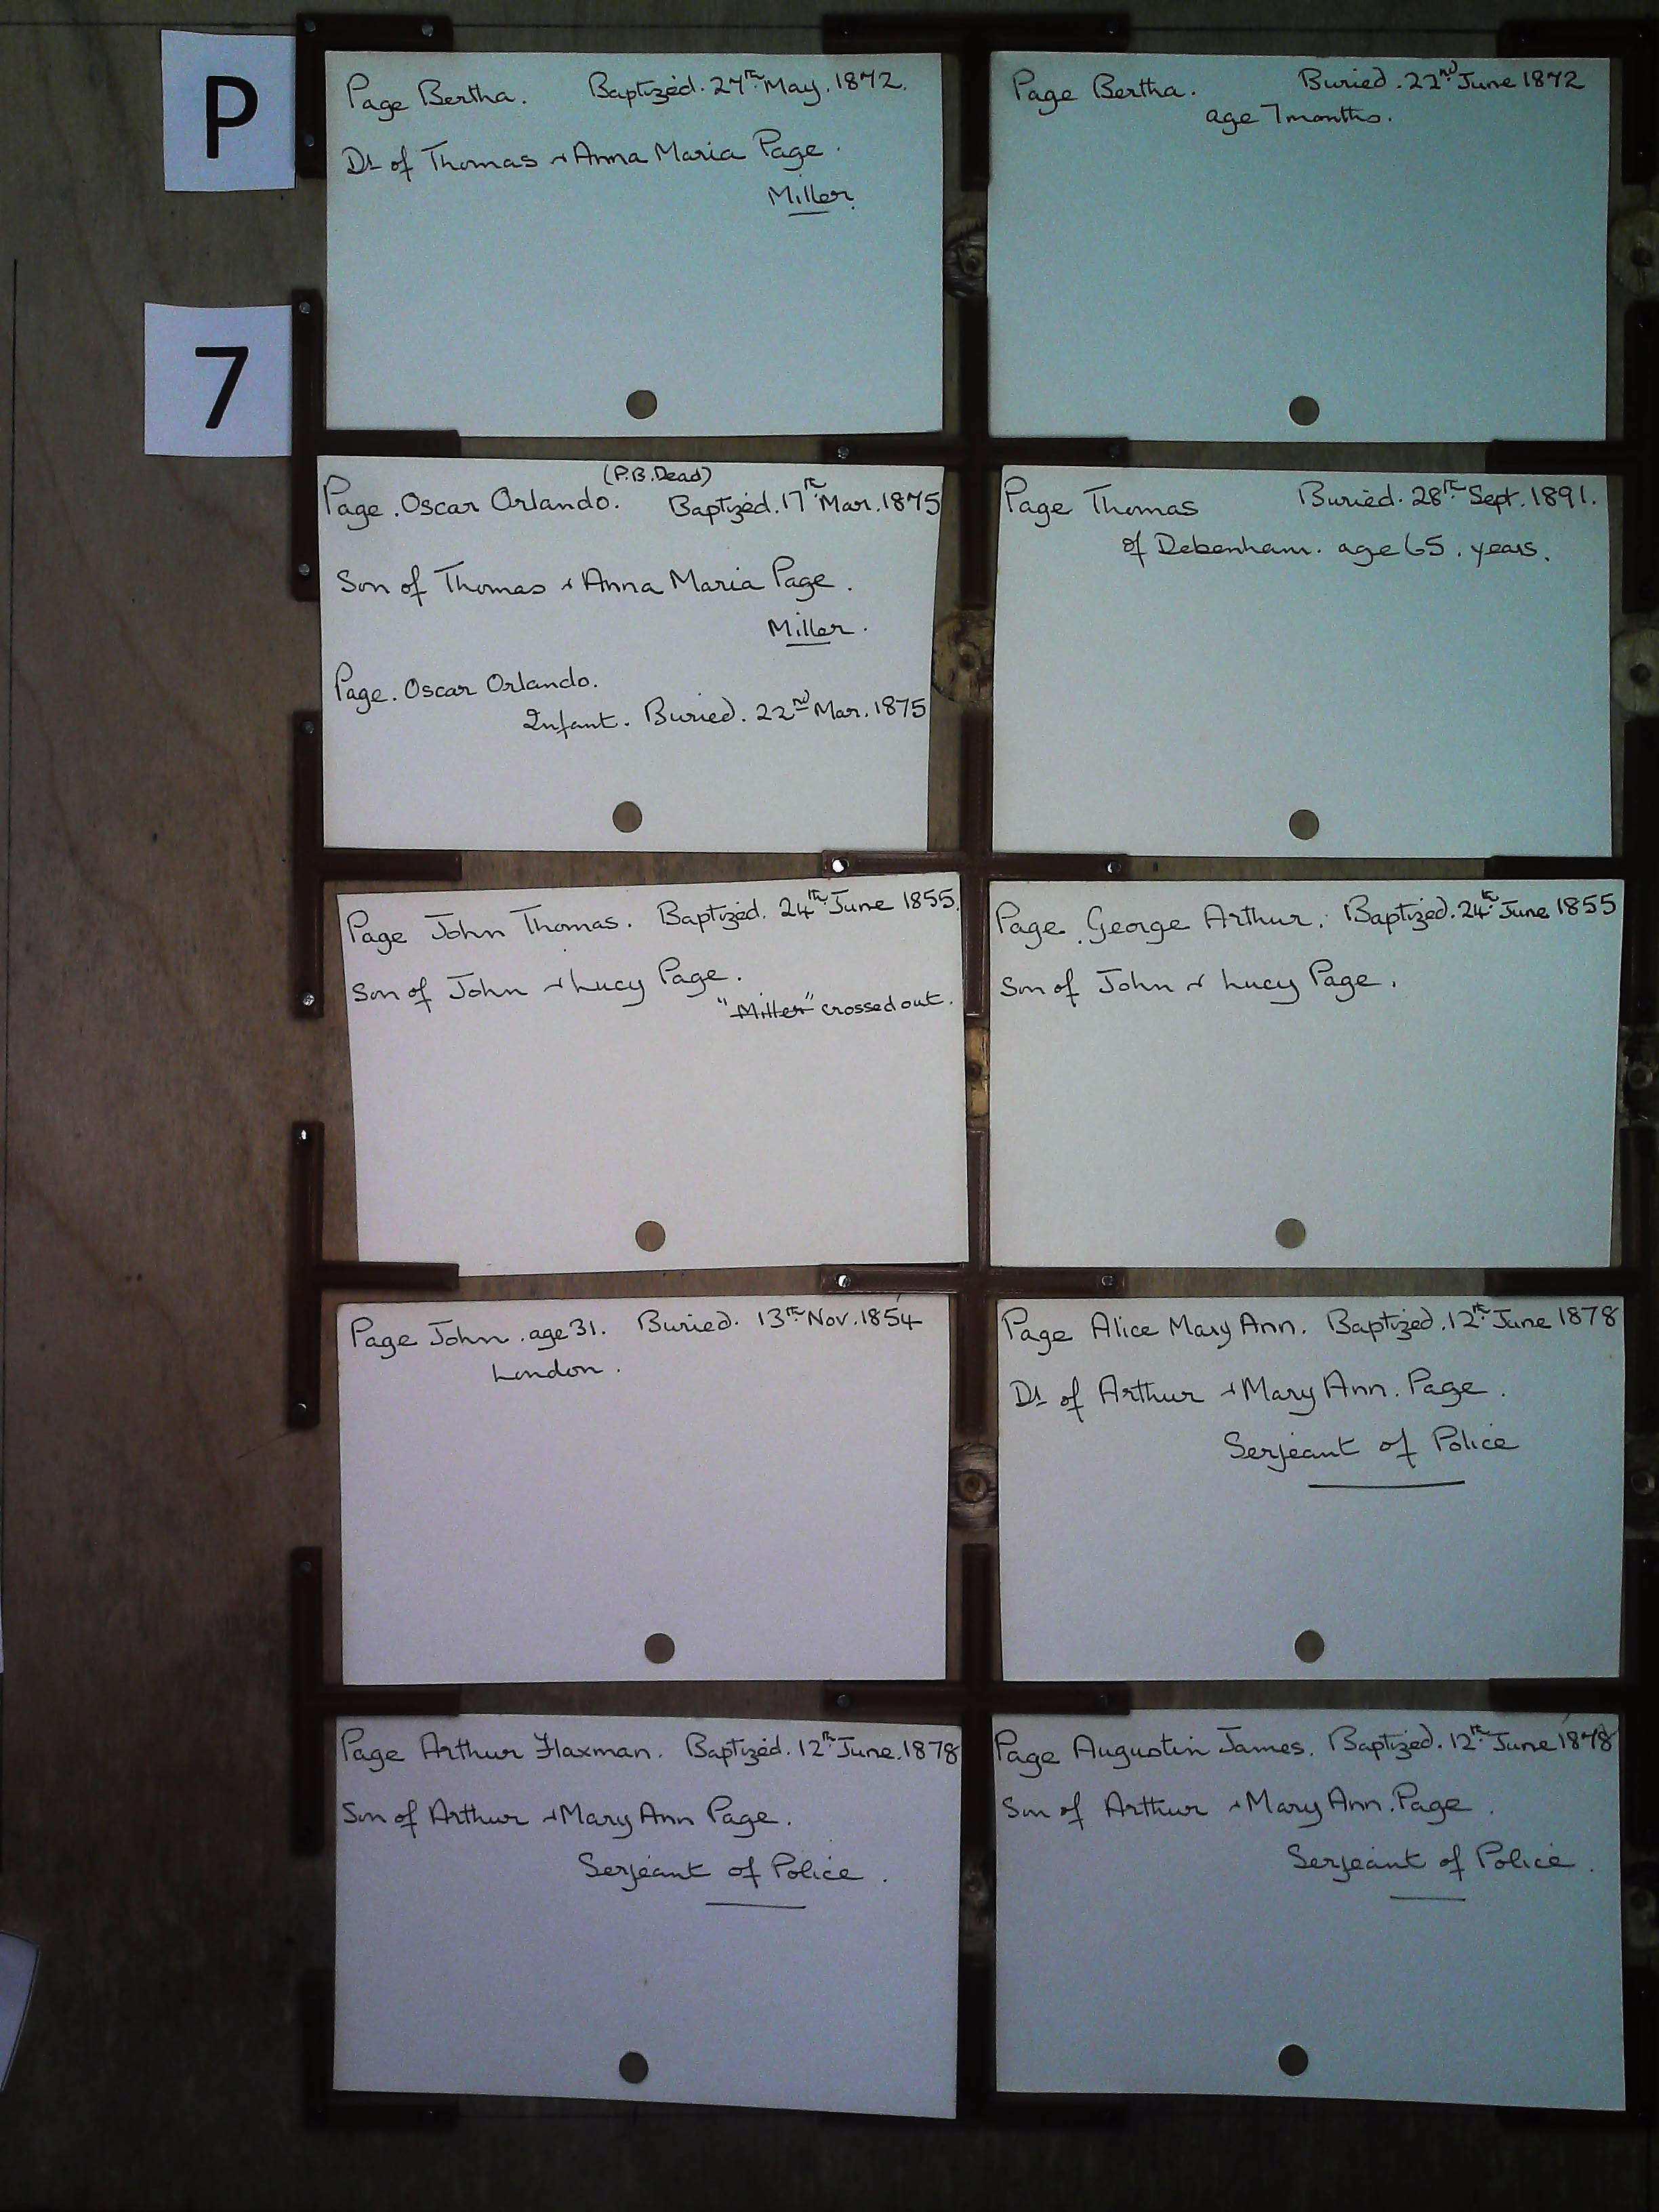 P
7
Page Bertha. Baptized. 27th May. 1872.
Dr of Thomas & Anna Maria Page.
Miller.
Page Bertha. Buried. 22nd June 1872
age 7 months.
(P.B. Dead)
Page. Oscar Orlando. Baptized. 17th Mar. 1875
Son of Thomas & Anna Maria Page.
Miller.
Page. Oscar Orlando.
Infant. Buried. 22nd Mar. 1875
Page Thomas Buried. 28th Sept. 1891.
of Debenham. age 65. years.
Page John Thomas. Baptized. 24th June 1855.
Son of John & Lucy Page.
"Miller" crossed out.
Page. George Arthur. Baptized. 24th June 1855
Son of John & Lucy Page.
Page John. age 31. Buried. 13th Nov. 1854
London.
Page Alice Mary Ann. Baptized. 12th June 1878
Dr of Arthur & Mary Ann. Page.
Serjeant of Police
Page Arthur Flaxman. Baptized. 12th June. 1878
Son of Arthur & Mary Ann Page.
Serjeant of Police.
Page Augustin James. Baptized. 12th June 1878
Son of Arthur & Mary Ann. Page.
Serjeant of Police.